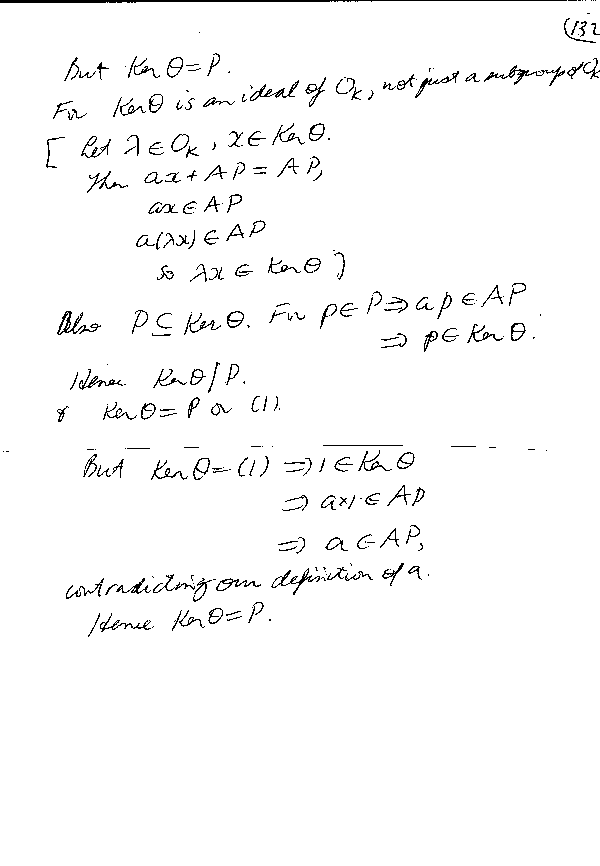 (132
But Ker θ = P.
For Ker θ is an ideal of O_K, not just a subgroup of O_K
[ Let λ ∈ O_K, x ∈ Ker θ.
Then ax + AP = AP,
ax ∈ AP
a(λx) ∈ AP
so λx ∈ Ker θ ]
Also P ⊆ Ker θ. For p ∈ P ⇒ ap ∈ AP
⇒ p ∈ Ker θ.
Hence Ker θ | P.
& Ker θ = P or (1).
But Ker θ = (1) ⇒ 1 ∈ Ker θ
⇒ a×1 ∈ AP
⇒ a ∈ AP,
contradicting our definition of a.
Hence Ker θ = P.